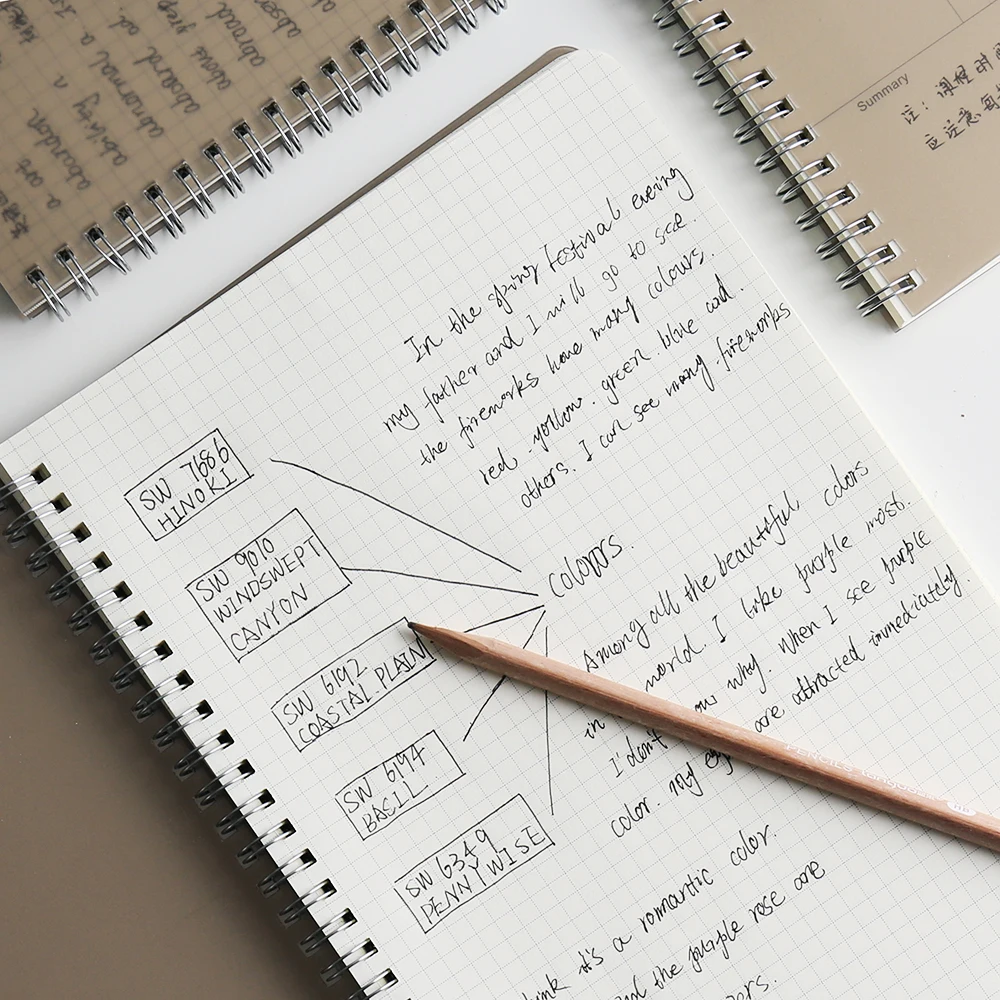 In the spring festival evening
my father and I will go to see.
the fireworks have many colours.
red. yollow. green. blue and.
others. I can see many fireworks
SW 7686
HINOKI
SW 9010
WINDSWEPT
CANYON
SW 6192
COASTAL PLAIN
SW 6194
BASIL
SW 6349
PENNYWISE
colors.
Among all the beautiful colors
in world. I like purple most.
I don't why. when I see purple
color. my are attracted immediately.
it's a romantic color.
the purple rose are
Summary
注:课程时
应注意每
a art
abandon
ability n
abnormal a
aboard ad
above prep
abroad
PENCILS
HB